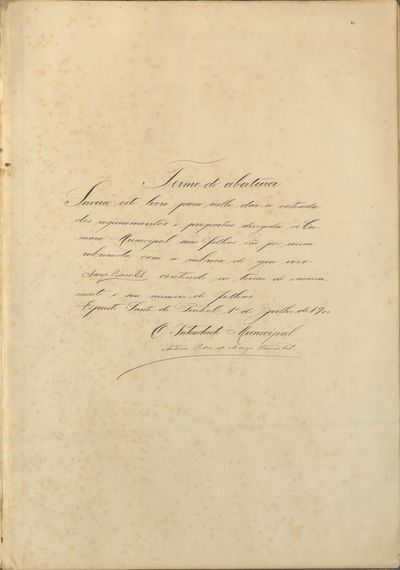 Termo de abertura
Servirá este livro para nelle dar-se entrada
dos requerimentos e propostas dirigidas á Ca-
mara Municipal, suas folhas vão por mim
rubricadas com a rubrica de que uso
Araujo Pimentel contendo no termo de encerra-
mento o seu numero de folhas.
Espirito Santo do Pinhal, 1º de julho de 190
O Intendente Municipal
Antonio de Araujo Pimentel